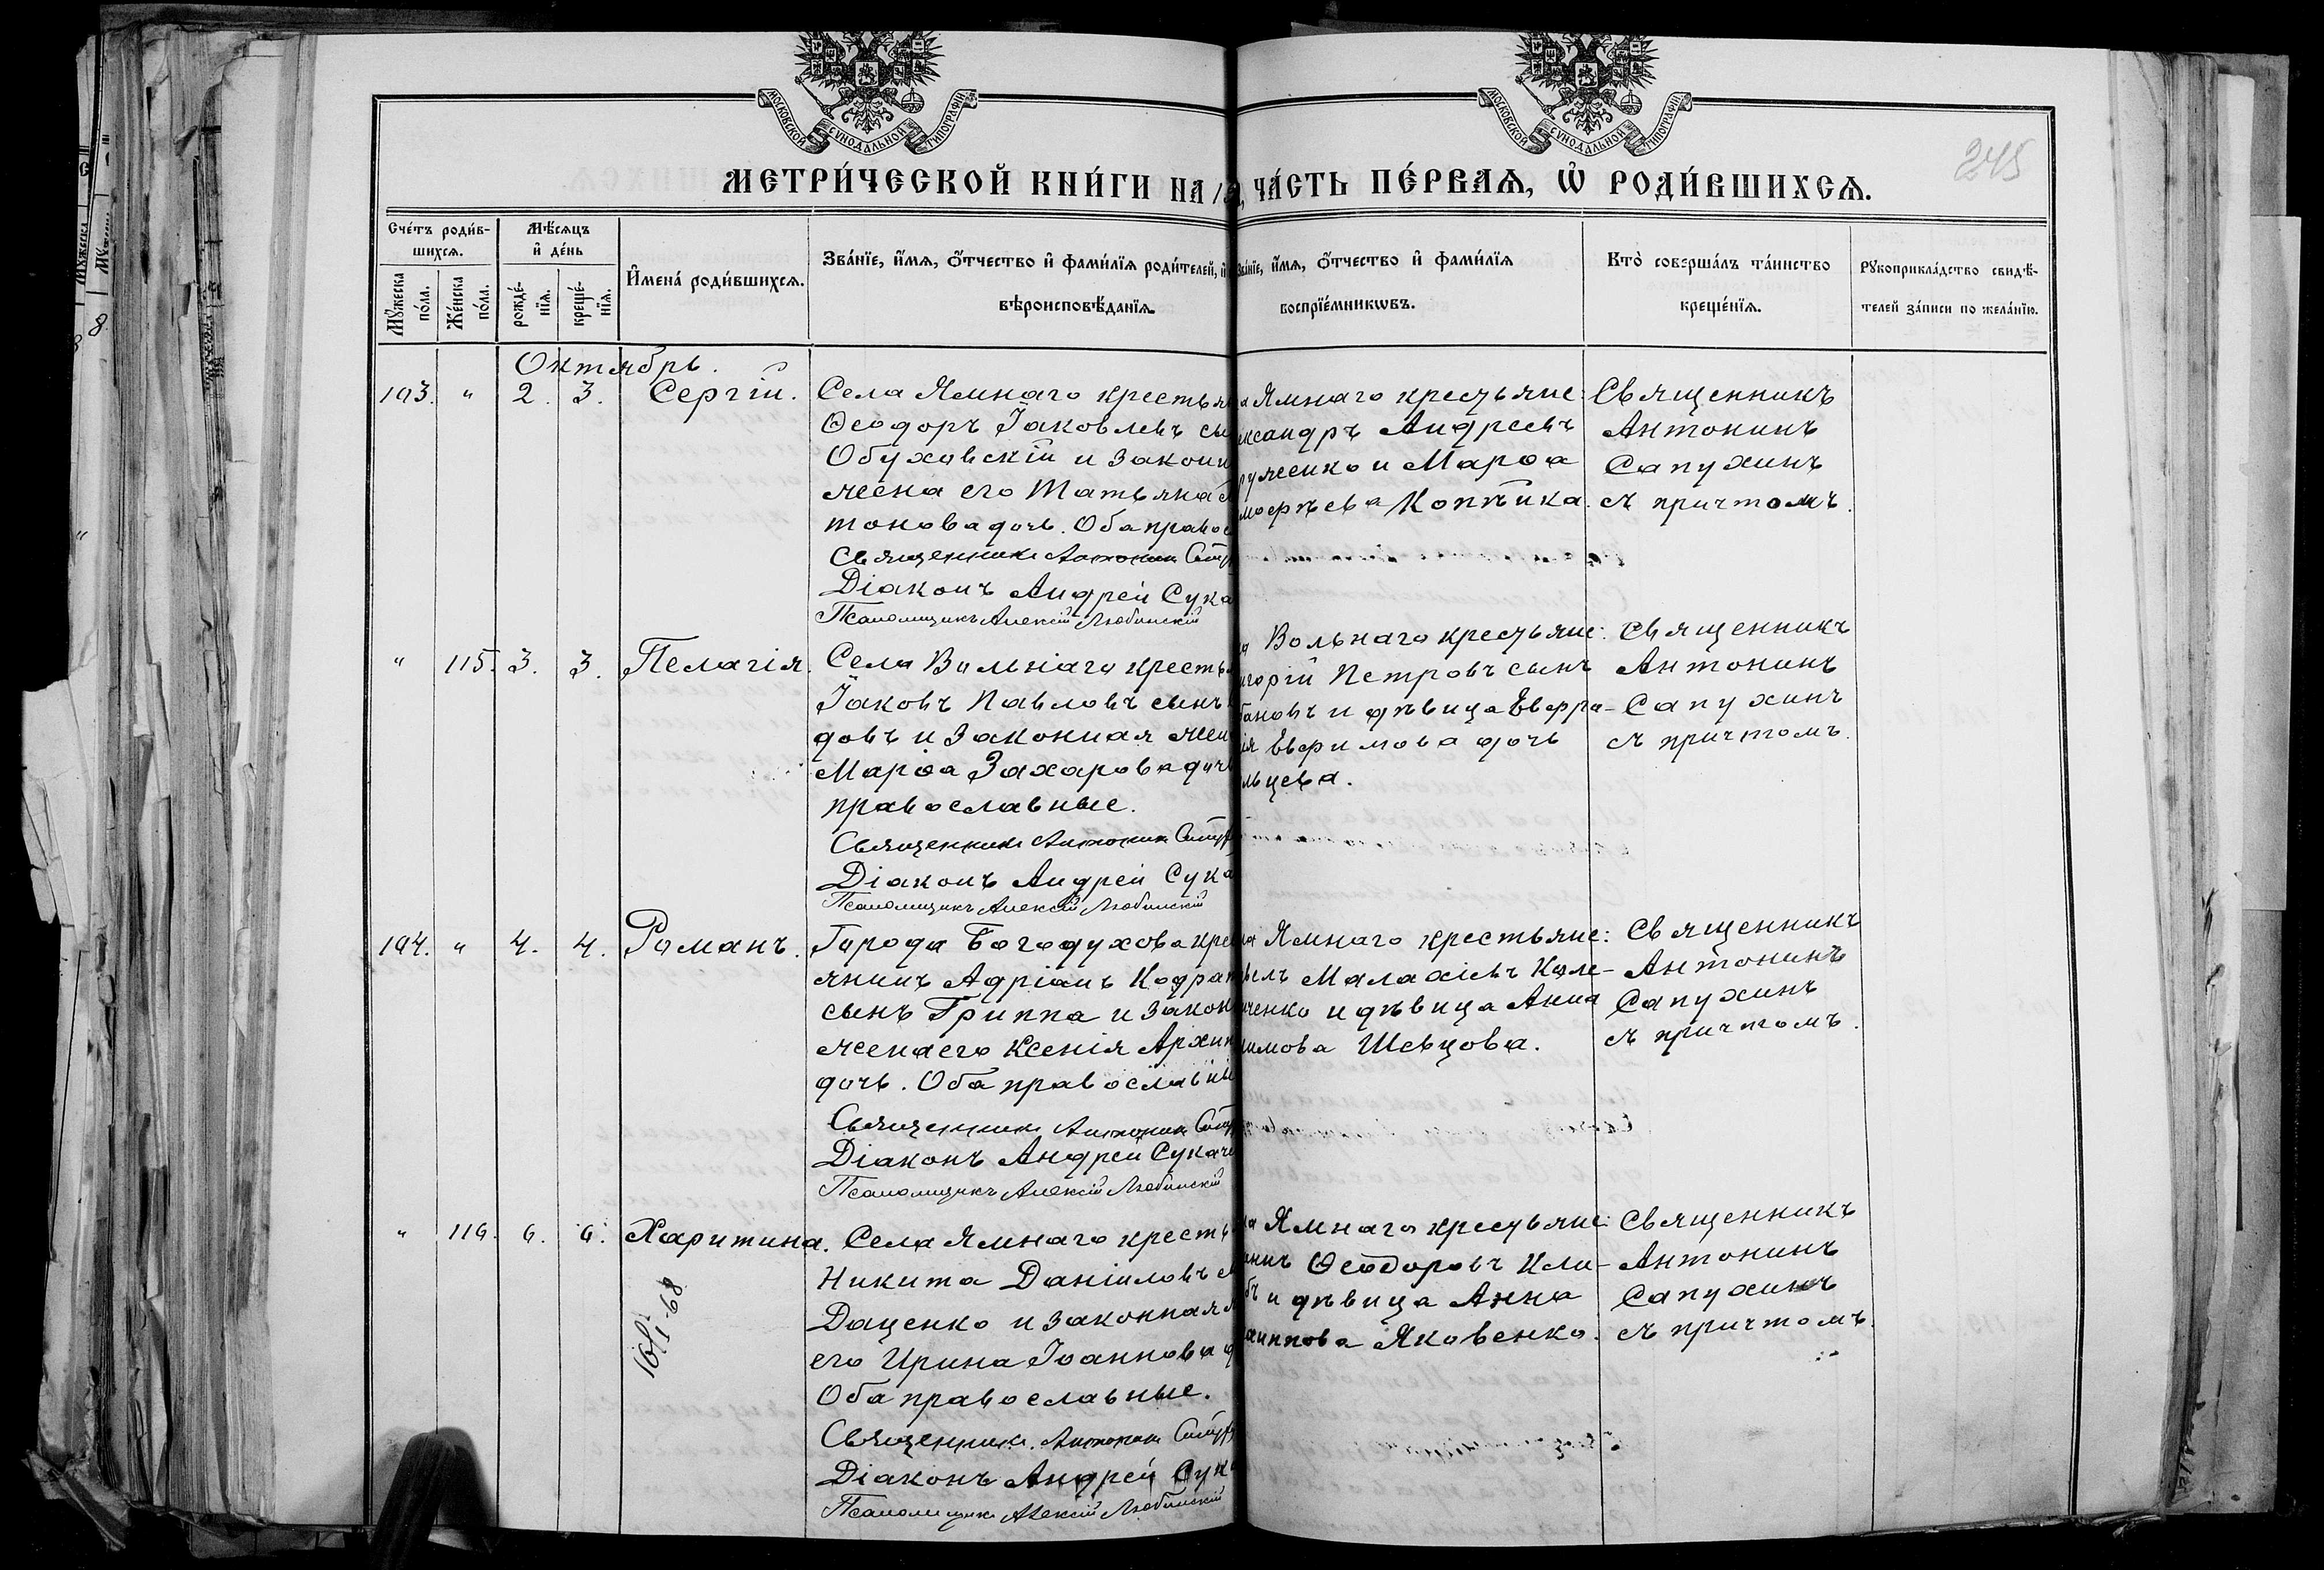 МОСКОВСКОЙ СѴНОДАЛЬНОЙ ТИПОГРАФІИ
МОСКОВСКОЙ СѴНОДАЛЬНОЙ ТИПОГРАФІИ
245
МЕТРИ́ЧЕСКОЙ КНИ́ГИ НА ЧА́СТЬ ПЕ́РВАЯ, Ѡ҆ РОДИ́ВШИХСЯ.
Сче́тъ роди́в-
шихся.
Мѣ́сяцъ
и҆ де́нь
Мꙋ́жеска
по́ла.
Же́нска
по́ла.
рожде́-
нїя.
креще́-
нїя.
И҆мена̀ роди́вшихся.
Зва́нїе, и҆́мя, ѻ҆́тчество и҆ фами́лїя роди́телей, и҆
вѣроисповѣ́данїя.
Зва́нїе, и҆́мя, ѻ҆́тчество и҆ фами́лїя
воспрїе́мникѡвъ.
Кто̀ соверша́лъ та́инство
креще́нїя.
Рꙋкоприкла́дство свидѣ́-
телей за́писи по жела́нїю.
Октябрь.
103. " 2. 3. Сергій.
Села Ямнаго крестьян
Ѳеодоръ Іаковлевъ сы
Обуховскій и законн
жена его Татьяна
тонова дочь. Оба правос
Священникъ Антонин Сапух
Діаконъ Андрей Сука
Псаломщикъ Алексій Любинскій
а Ямнаго крестьяне:
ксандръ Андреевъ
рученко и Марѳа
моѳѣева Копѣйка.
Священникъ
Антонинъ
Сапухинъ
съ причтомъ.
" 115. 3. 3. Пелагія.
Села Вольнаго кресть
Іаковъ Павловъ сынъ
довъ и законная жен
Марѳа Захарова дочь
православные.
Священникъ Антонин Сапух
Діаконъ Андрей Сука
Псаломщикъ Алексій Любинскій
а Вольнаго крестьяне:
игорій Петровъ сынъ
бановъ и дѣвица Евфра-
ія Евфимова дочь
льцева.
Священникъ
Антонинъ
Сапухинъ
съ причтомъ.
104. " 4. 4. Романъ.
Города Богодухова кре
янинъ Адріанъ Кодрат
сынъ Гриппа и закон
жена его Ксенія Архип
дочь. Оба православны
Священникъ Антонин Сапу
Діаконъ Андрей Сукаче
Псаломщикъ Алексій Любинскій
а Ямнаго крестьяне:
велъ Малахіевъ Коле-
ченко и дѣвица Анна
имова Шевцова.
Священникъ
Антонинъ
Сапухинъ
съ причтомъ.
" 116. 6. 6. Харитина.
16/I-68
Села Ямнаго кресть
Никита Даніиловъ с
Даценко и законная
его Ирина Іоаннова д
Оба православные.
Священникъ Антонин Сапух
Діаконъ Андрей Сук
Псаломщикъ Алексій Любинскій
а Ямнаго крестьяне:
онъ Ѳеодоровъ Кли-
бъ и дѣвица Анна
липпова Яковенко.
Священникъ
Антонинъ
Сапухинъ
съ причтомъ.